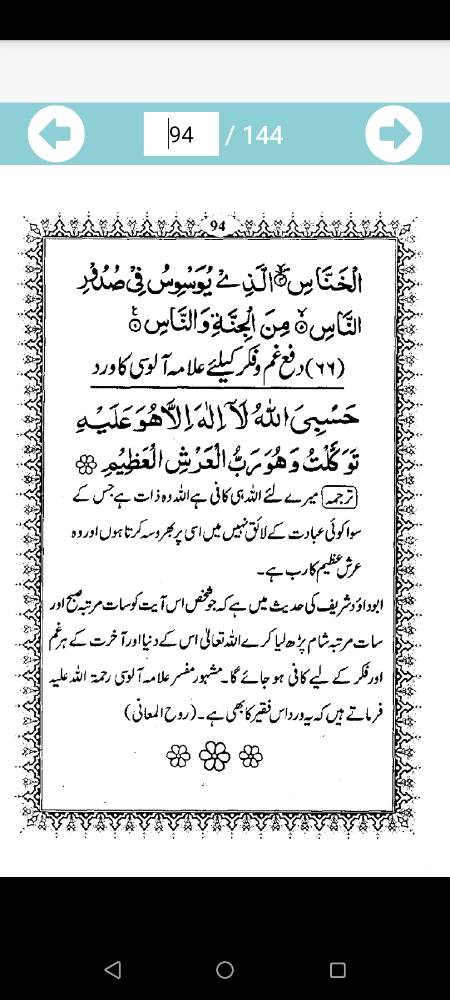 94 / 144
94
الْخَنَّاسِ ۙ الَّذِیْ یُوَسْوِسُ فِیْ صُدُوْرِ
النَّاسِ ۙ مِنَ الْجِنَّةِ وَالنَّاسِ ۠
(۶۶) دفع غم و فکر کیلئے علامہ آلوسی کا ورد
حَسْبِیَ اللّٰهُ لَآ اِلٰهَ اِلَّا هُوَ عَلَیْهِ
تَوَكَّلْتُ وَهُوَ رَبُّ الْعَرْشِ الْعَظِیْمِ
ترجمہ میرے لئے اللہ ہی کافی ہے اللہ وہ ذات ہے جس کے
سوا کوئی عبادت کے لائق نہیں میں اسی پر بھروسہ کرتا ہوں اور وہ
عرش عظیم کا رب ہے۔
ابوداؤد شریف کی حدیث میں ہے کہ جو شخص اس آیت کو سات مرتبہ صبح اور
سات مرتبہ شام پڑھ لیا کرے اللہ تعالیٰ اس کے دنیا اور آخرت کے ہر غم
اور فکر کے لیے کافی ہو جائے گا۔ مشہور مفسر علامہ آلوسی رحمۃ اللہ علیہ
فرماتے ہیں کہ یہ ورد اس فقیر کا بھی ہے۔ (روح المعانی)